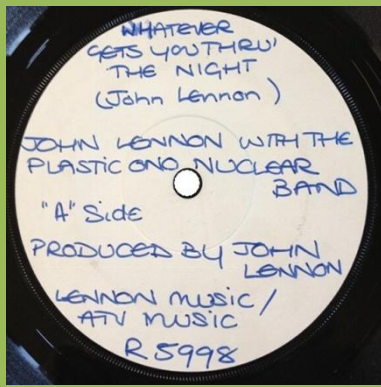 WHATEVER
GETS YOU THRU'
THE NIGHT
(John Lennon)
JOHN LENNON WITH THE
PLASTIC ONO NUCLEAR
BAND
"A" Side
PRODUCED BY JOHN
LENNON
LENNON MUSIC/
ATV MUSIC
R 5998